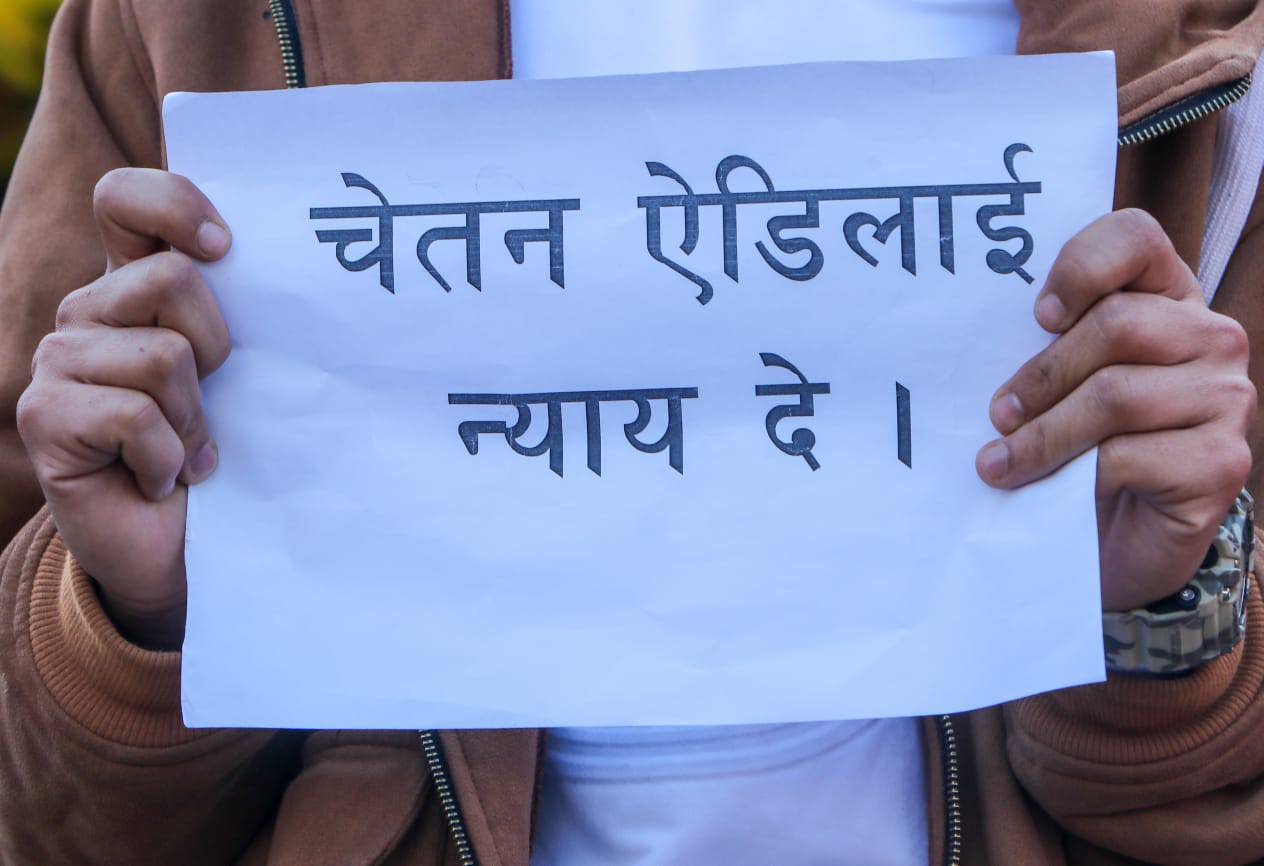 चेतन ऐडिलाई
न्याय दे ।